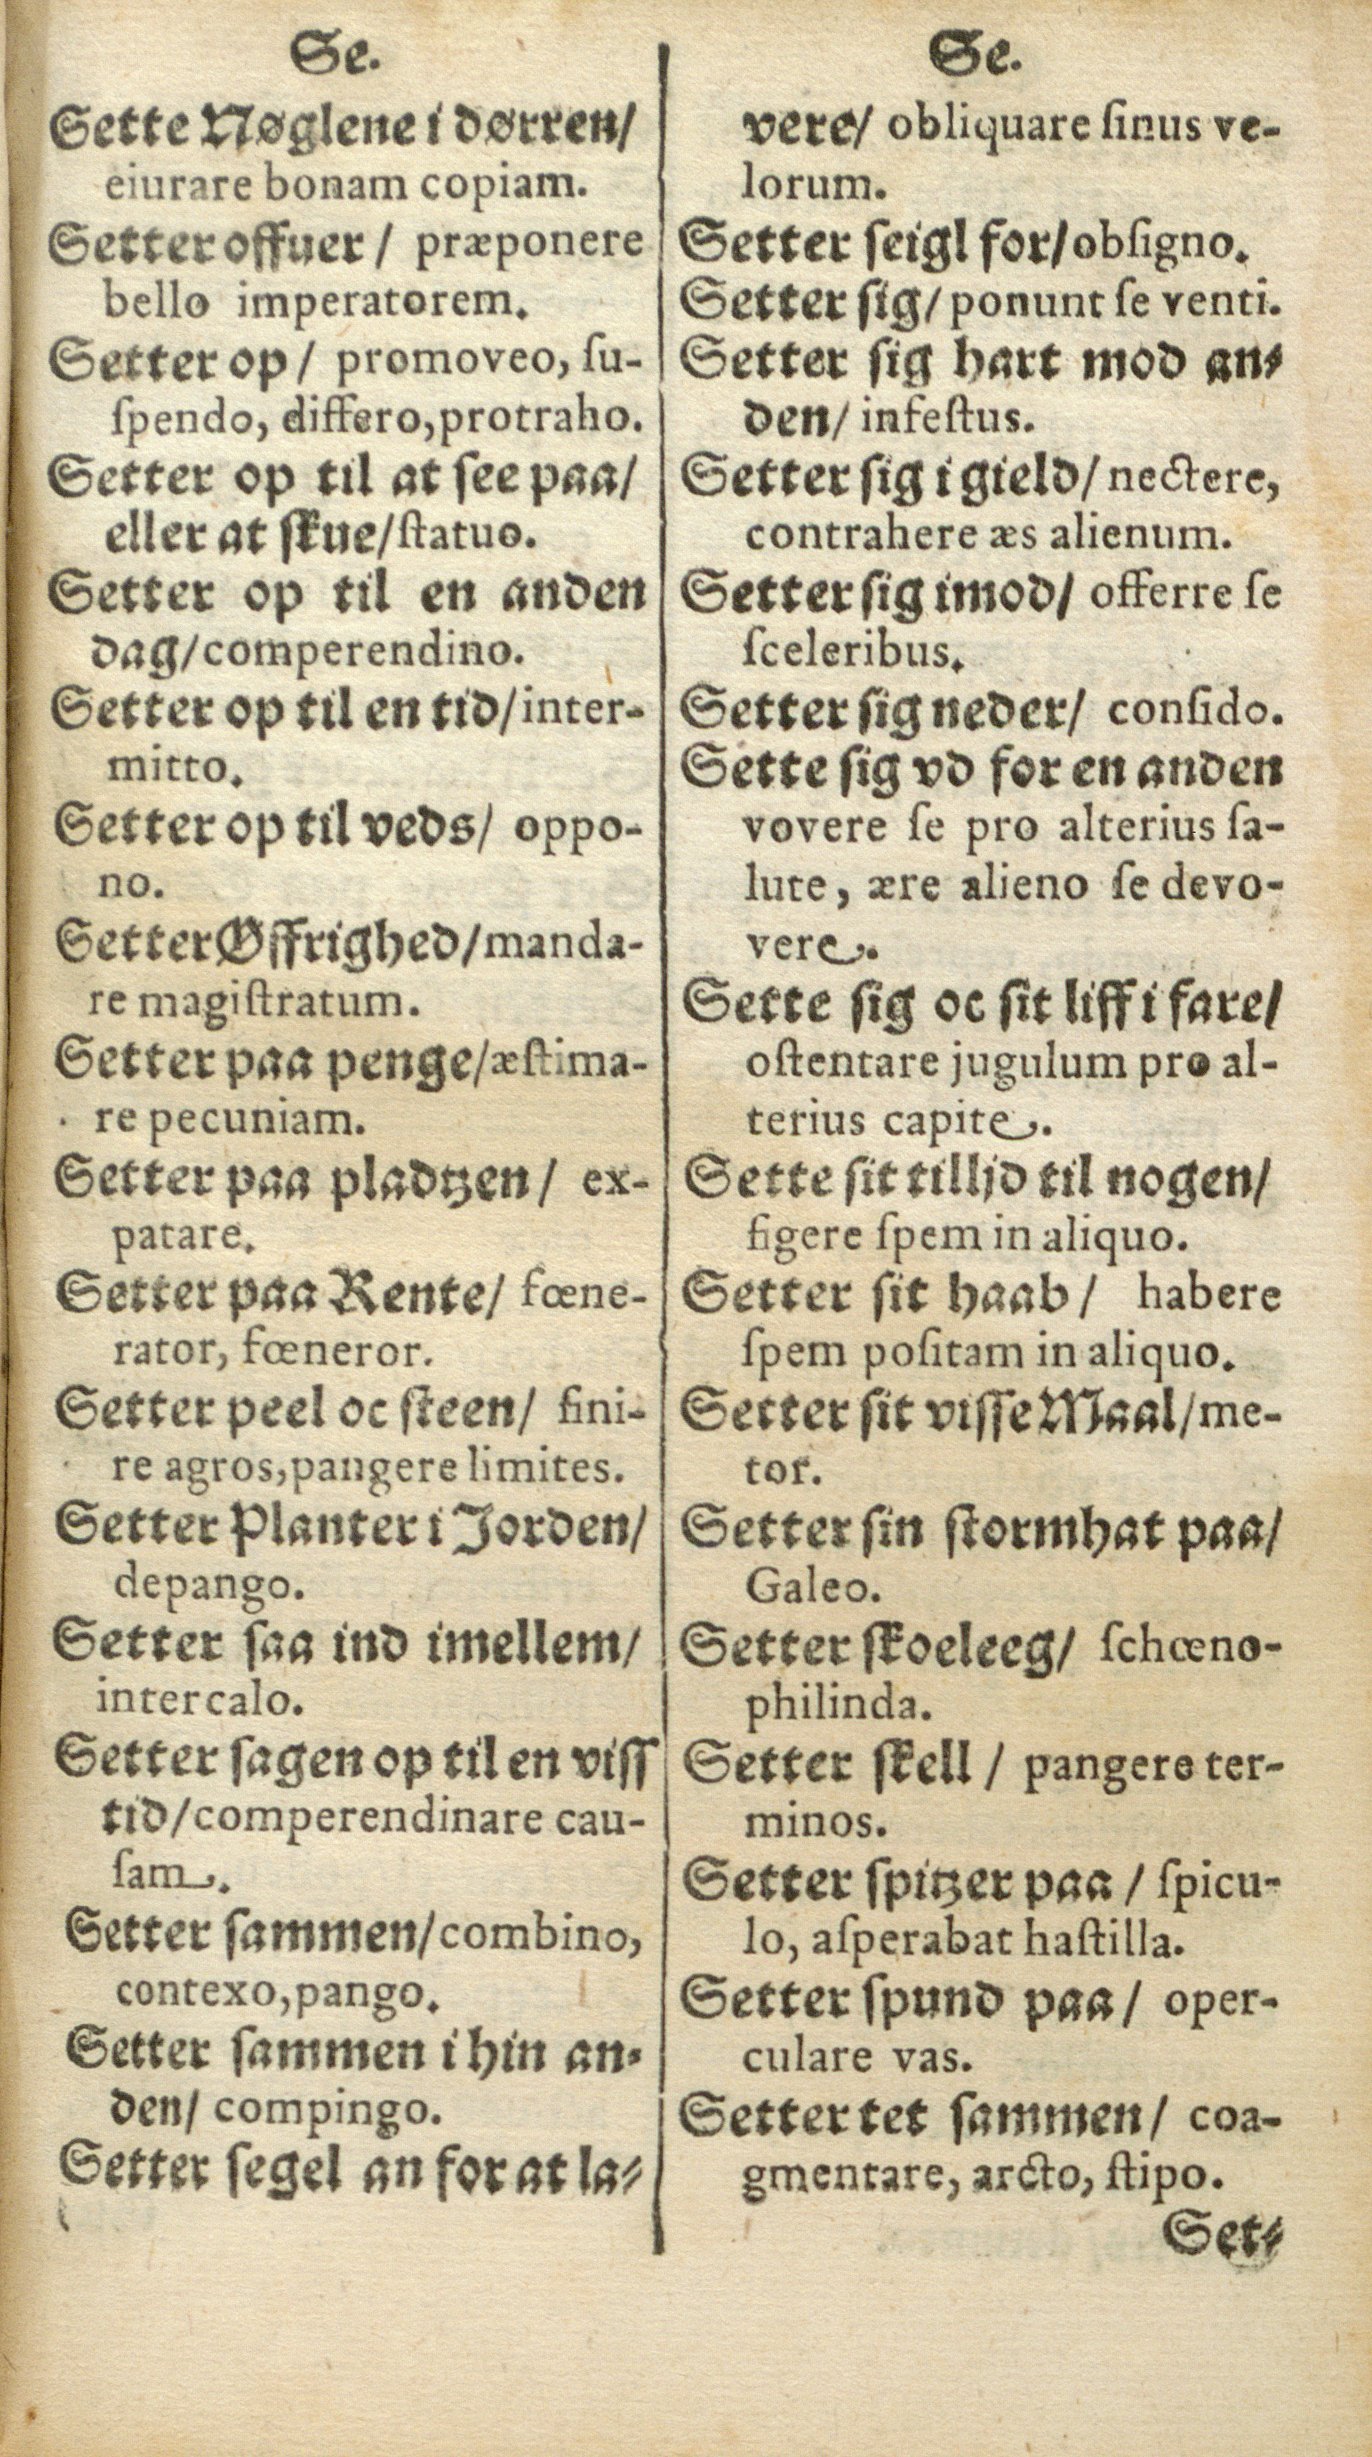 Se.
Sette Nøglene i dørren/
eiurare bonam copiam.
Setter offuer/ præponere
bello imperatorem.
Setter op/ promoveo, ſu-
ſpendo, differo, protraho.
Setter op til at ſee paa/
eller at ſkue/ ſtatuo.
Setter op til en anden
dag/ comperendino.
Setter op til en tid/ inter-
mitto.
Setter op til veds/ oppo-
no.
Setter Øffrighed/ manda-
re magiſtratum.
Setter paa penge/ æſtima-
re pecuniam.
Setter paa pladtzen/ ex-
patare.
Setter paa Rente/ fœne-
rator, fœneror.
Setter peel oc ſteen/ fini-
re agros, pangere limites.
Setter Planter i Jorden/
depango.
Setter ſaa ind imellem/
intercalo.
Setter ſagen op til en viſſ
tid/ comperendinare cau-
ſam.
Setter ſammen/ combino,
contexo, pango.
Setter ſammen i hin an-
den/ compingo.
Setter ſegel an for at la-
Se.
vere/ obliquare ſinus ve-
lorum.
Setter ſeigl for/ obſigno.
Setter ſig/ ponunt ſe venti.
Setter ſig hart mod an-
den/ infeſtus.
Setter ſig i gield/ nectere,
contrahere æs alienum.
Setter ſig imod/ offerre ſe
ſceleribus.
Setter ſig neder/ conſido.
Sette ſig vd for en anden
vovere ſe pro alterius ſa-
lute, ære alieno ſe devo-
vere.
Sette ſig oc ſit liff i fare/
oſtentare jugulum pro al-
terius capite.
Sette ſit tillid til nogen/
figere ſpem in aliquo.
Setter ſit haab/ habere
ſpem poſitam in aliquo.
Setter ſit viſſe Maal/ me-
tor.
Setter ſin ſtormhat paa/
Galeo.
Setter ſkoeleeg/ ſchœno-
philinda.
Setter ſkell/ pangere ter-
minos.
Setter ſpitzer paa/ ſpicu-
lo, aſperabat haſtilla.
Setter ſpund paa/ oper-
culare vas.
Setter tet ſammen/ coa-
gmentare, arcto, ſtipo.
Set-